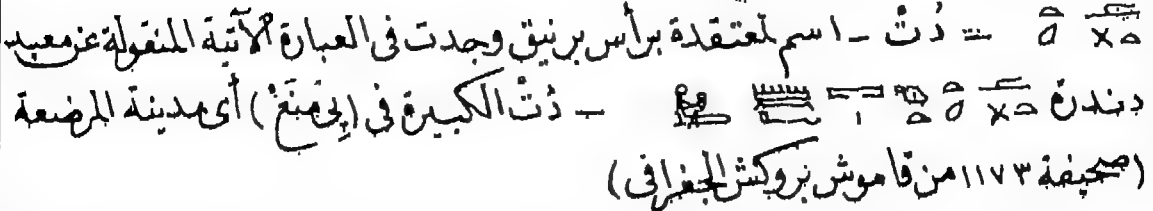 = دُتْ - اسم لمعتقدة برأس برنيق وجدت فى العبارة الآتية المنقولة عن معبد
دندرة - دُتْ الكبيرة في (پى مَنَعْ) أى مدينة المرضعة
(صحيفة ١١٧٣ من قاموش بروكش الجغرافى)